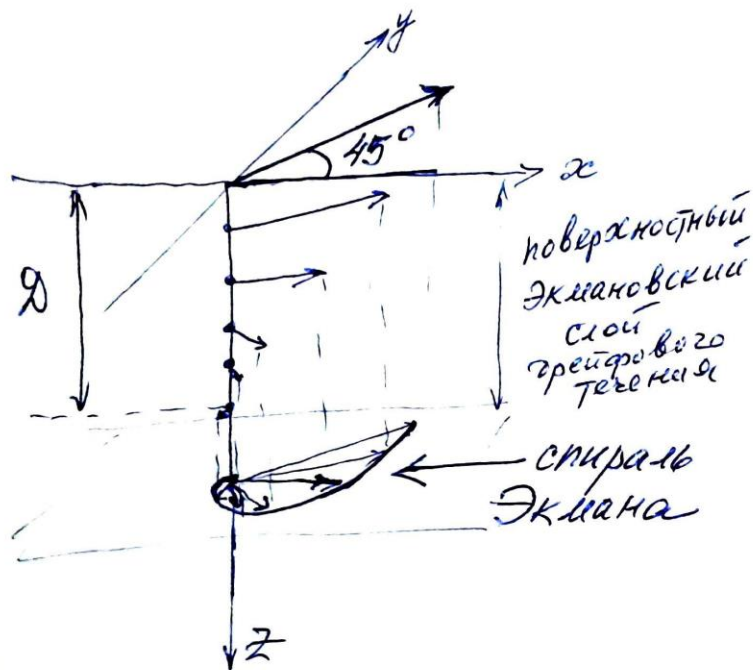 y
45°
x
D
поверхностный
Экмановский
слой
дрейфового
течения
спираль
Экмана
z